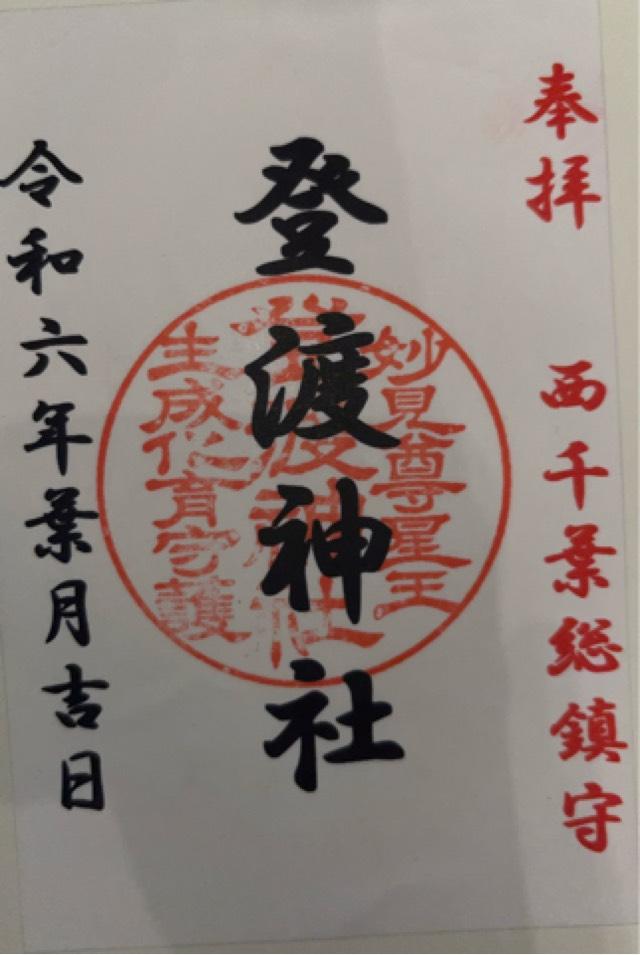 奉拝 西千葉総鎮守
登渡神社
妙見尊星王
登渡神社
生成化育守護
令和六年葉月吉日